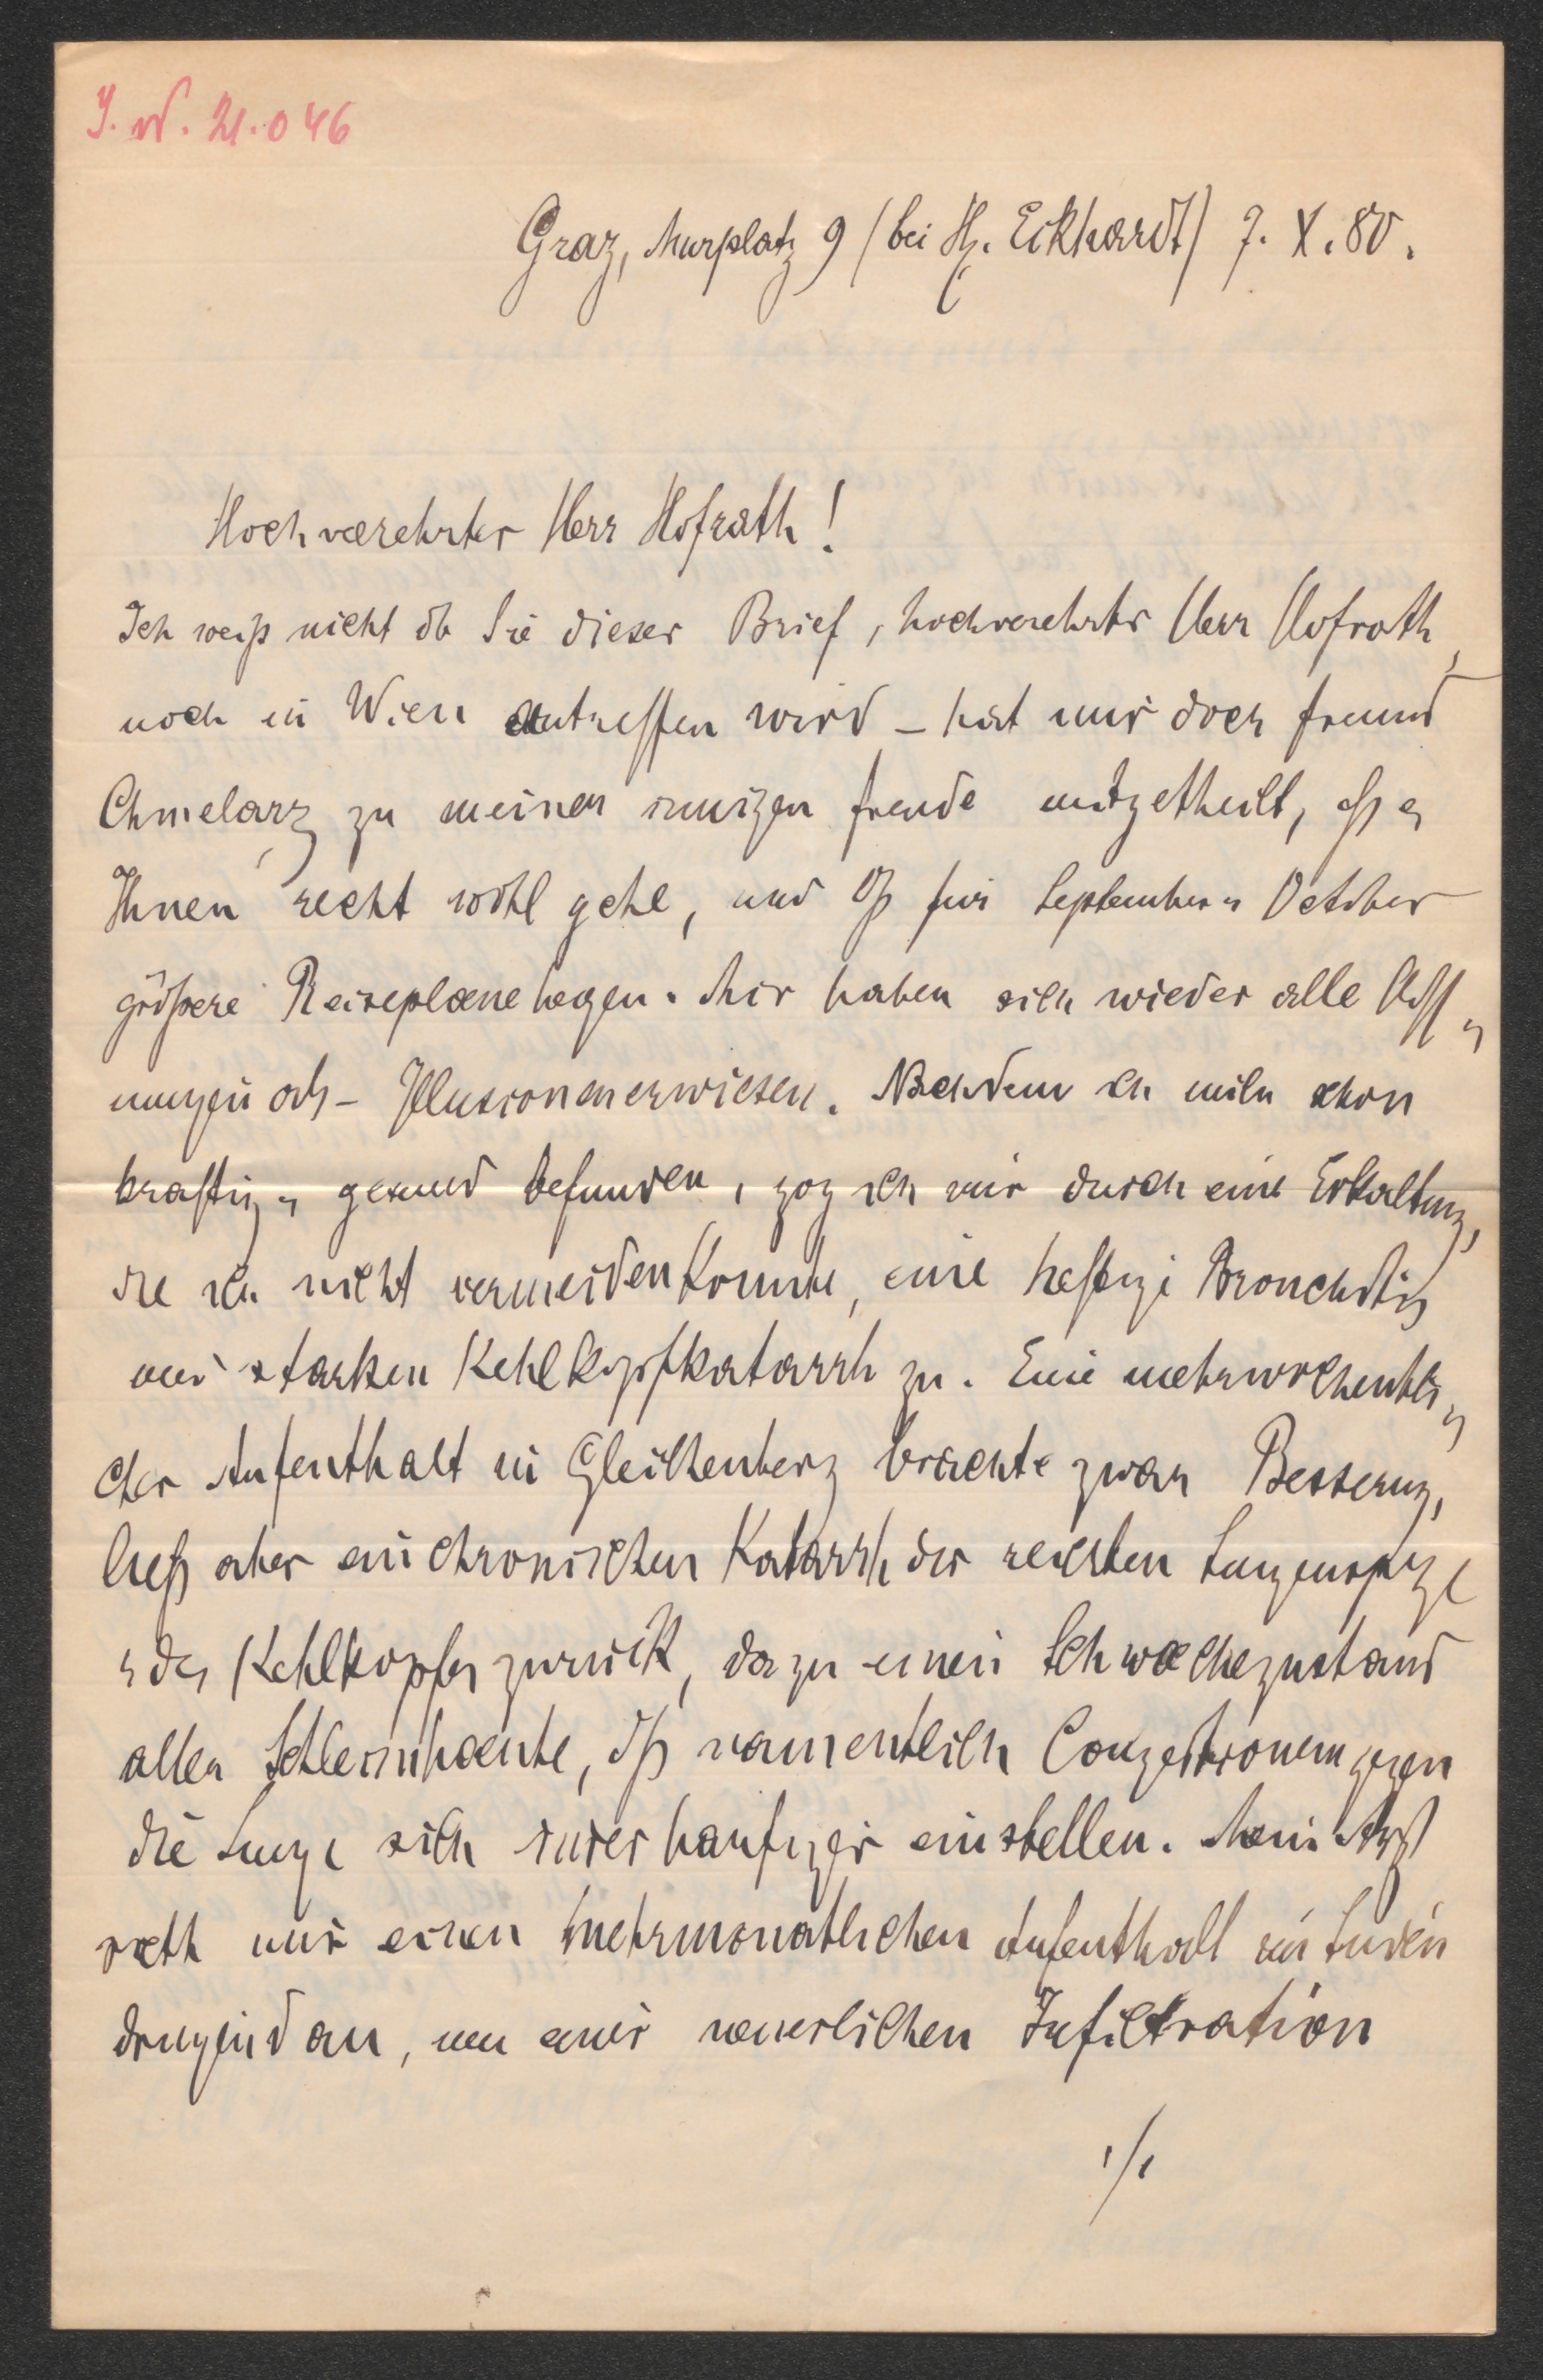 I. N. 21.046
Graz, Murplatz 9 (bei H. Eckhardt) 7. X. 80.
Hochverehrter Herr Hofrath!
Ich weiß nicht ob Sie dieser Brief, hochverehrter Herr Hofrath,
noch in Wien antreffen wird – hat mir doch Freund
Chmelarz zu meiner innigen Freude mitgetheilt, dß es
Ihnen recht wohl gehe, und Sß für September u October
größere Reiseplaene hegen. Mir haben sich wieder alle Hoff„
nungen als – Illusionen erwiesen. Nachdem ich mich schon
kraftig u gesund befunden, zog ich mir durch eine Erkaltung,
die ich nicht vermeiden konnte, eine heftige Bronchitis
und starken Kehlkopfkatarrh zu. Eine mehrwochentli„
cher Aufenthalt in Gleichenberg brachte zwar Besserung,
ließ aber ein chronischen Katarrh der rechten Lungenspitze
u des Kehlkopfes zurück, dazu einen Schwaechezustand
aller Schleimhaeute, dß namentlich Congestionen gegen
die Lunge sich haufiger einstellen. Mein Arzt
raeth mir einen mehrmonatlichen Aufenthalt im Süden
dringend an, um einer neuerlichen Infiltration
./.